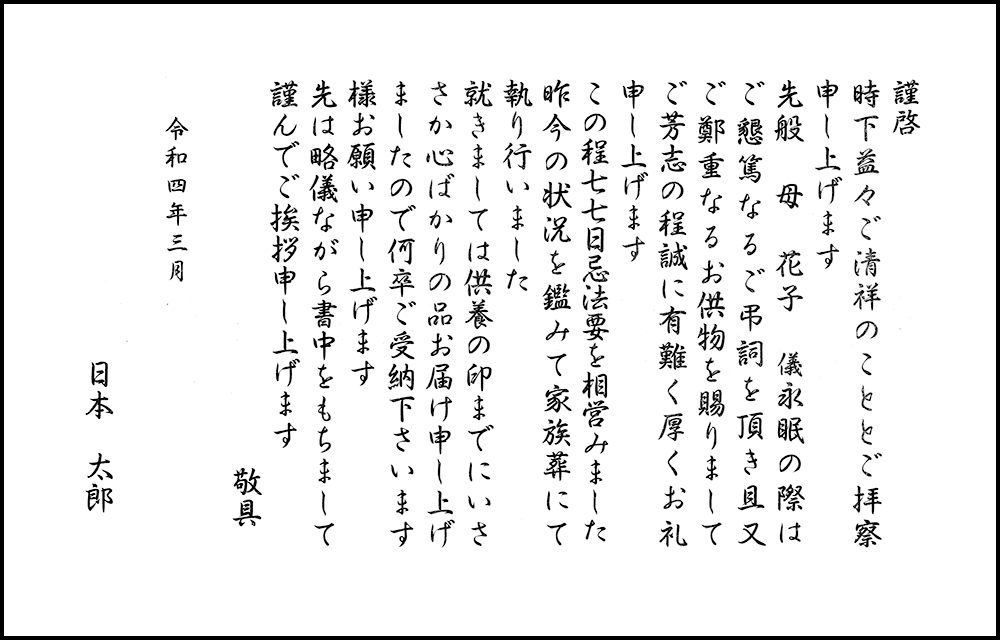 謹啓
時下益々ご清祥のこととご拝察
申し上げます
先般　母　花子　儀永眠の際は
ご懇篤なるご弔詞を頂き且又
ご鄭重なるお供物を賜りまして
ご芳志の程誠に有難く厚くお礼
申し上げます
この程七七日忌法要を相営みました
昨今の状況を鑑みて家族葬にて
執り行いました
就きましては供養の印までにいさ
さか心ばかりの品お届け申し上げ
ましたので何卒ご受納下さいます
様お願い申し上げます
先は略儀ながら書中をもちまして
謹んでご挨拶申し上げます
敬具
令和四年三月
日本　太郎